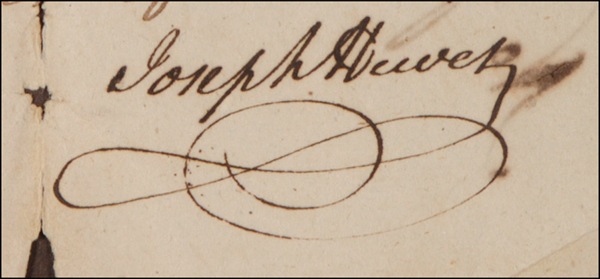 Joseph Hewes